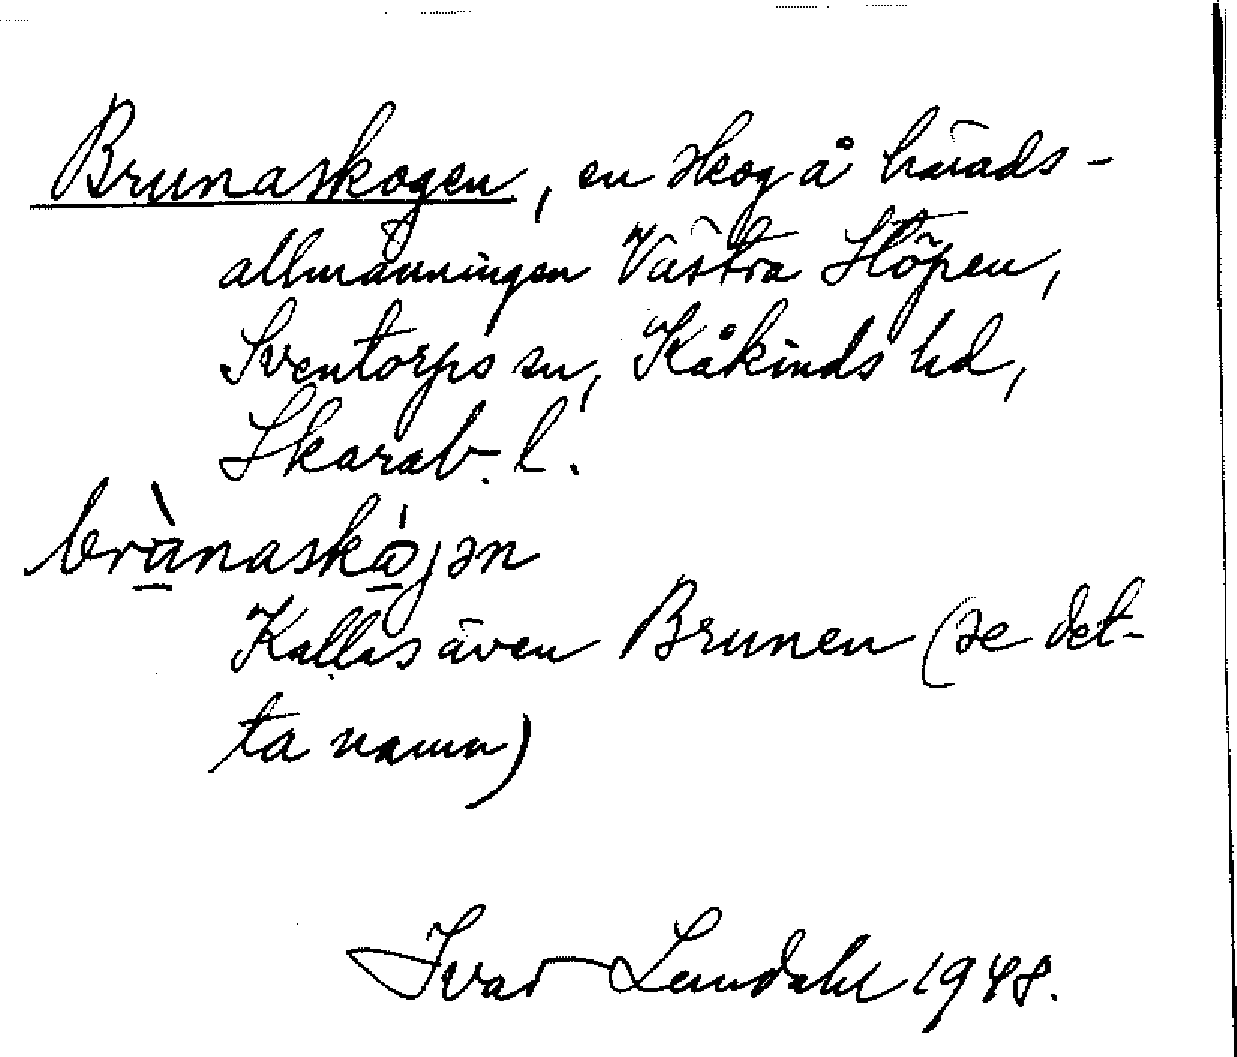 Brunaskogen, en skog å härads-
allmänningen Västra Höpen,
Sventorps sn, Kåkinds hd,
Skarab. l.
Kallas även Brunen (se det-
ta namn)
Ivar Lundahl 1948.